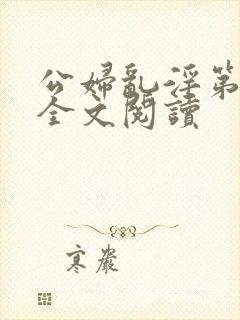 公婦亂淫第
全文閱讀
寒嚴